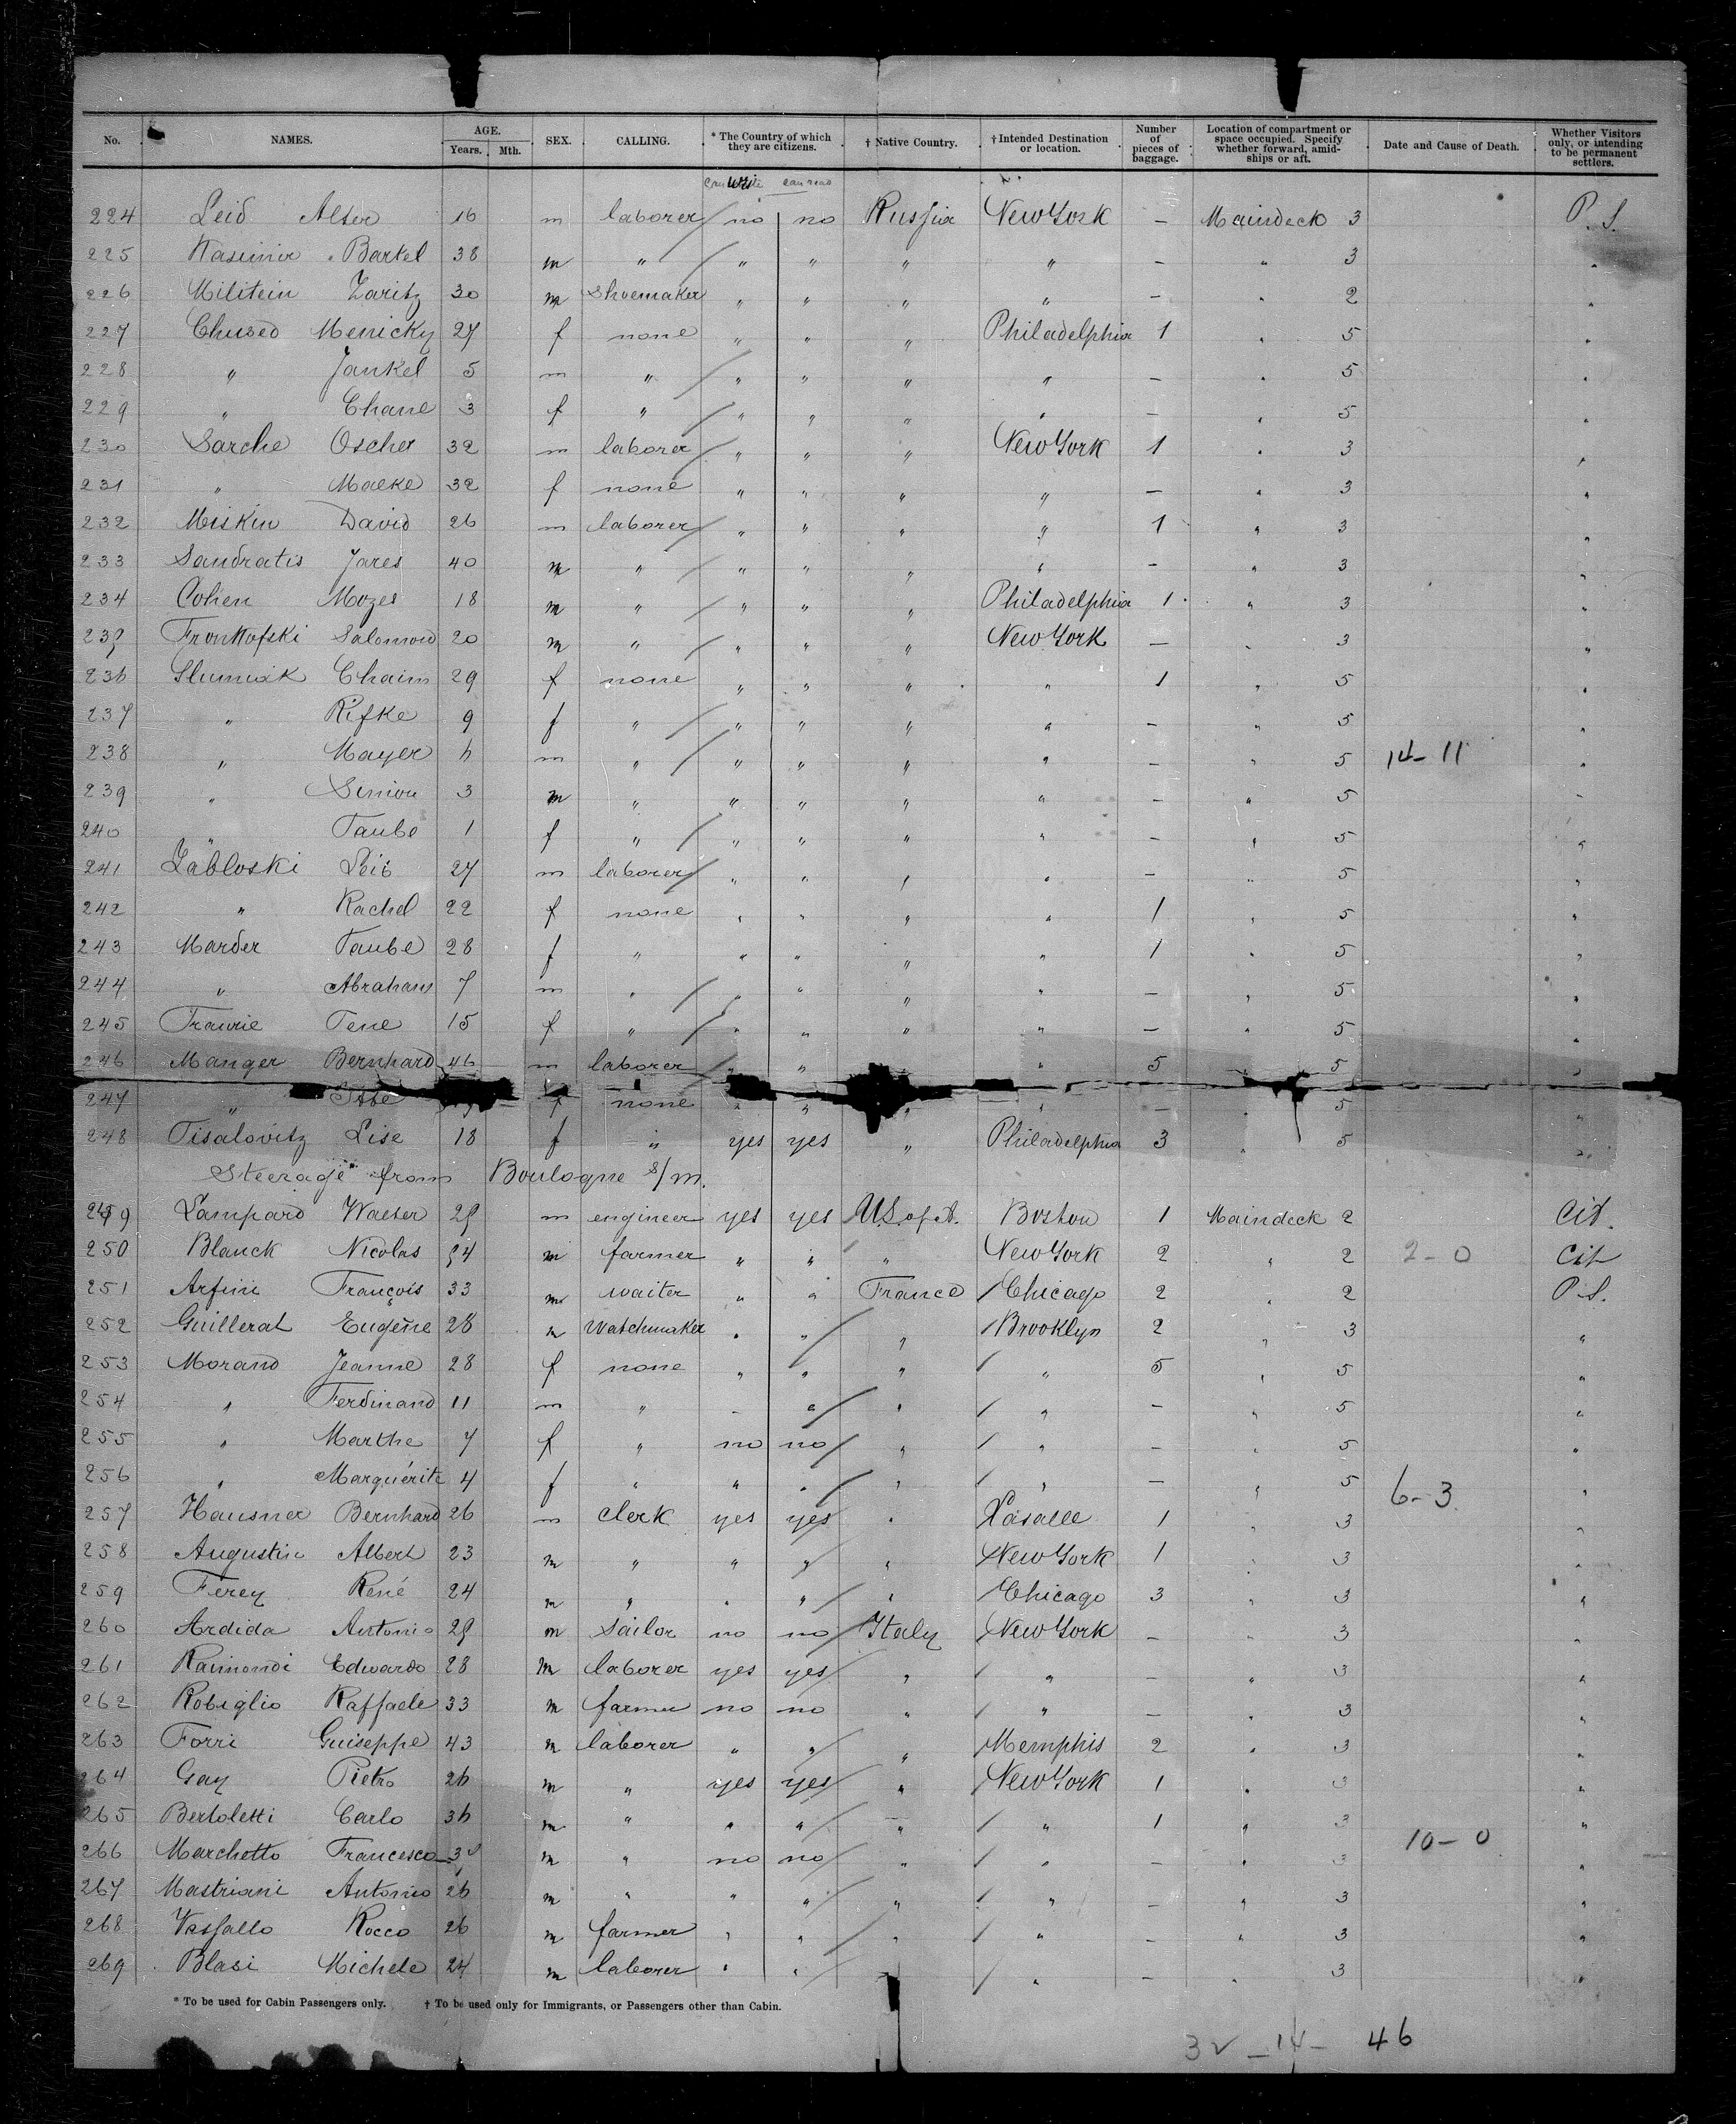 No. NAMES. AGE. Years. Mth. SEX. CALLING. * The Country of which they are citizens. † Native Country. † Intended Destination or location. Number of pieces of baggage. Location of compartment or space occupied. Specify whether forward, amidships or aft. Date and Cause of Death. Whether Visitors only, or intending to be permanent settlers.
can write can read
224 Leid Alter 16 m laborer no no Russia New York – Maindeck 3 P. S.
225 Kasimir Bartel 38 m " " " " " – " 3 "
226 Militein Zaritz 30 m Shoemaker " " " " – " 2 "
227 Chused Menicky 27 f none " " " Philadelphia 1 " 5 "
228 " Jankel 5 m " " " " " – " 5 "
229 " Chane 3 f " " " " " – " 5 "
230 Sarche Oscher 32 m laborer " " " New York 1 " 3 "
231 " Malke 32 f none " " " " – " 3 "
232 Miskin David 26 m laborer " " " " 1 " 3 "
233 Sandratis Jares 40 m " " " " " – " 3 "
234 Cohen Mozes 18 m " " " " Philadelphia 1 " 3 "
235 Fronkofski Salomon 20 m " " " " New York – " 3 "
236 Slumiak Chaim 29 f none " " " " 1 " 5 "
237 " Rifke 9 f " " " " " – " 5 "
238 " Mayer m " " " " " – " 5 14–11 "
239 " Simon 3 m " " " " " – " 5 "
240 " Taube 1 f " " " " " – " 5 "
241 Zabloski Leib 27 m laborer " " " " – " 5 "
242 " Rachel 22 f none " " " " 1 " 5 "
243 Marder Taube 28 f " " " " " 1 " 5 "
244 " Abraham 7 m " " " " " – " 5 "
245 Frawie Tene 15 f " " " " " – " 5 "
246 Manger Bernhard 46 m laborer " " " 5 " 5 "
247 " f none " " " " – " 5 "
248 Tisalovitz Lise 18 f " yes yes " Philadelphia 3 " 5 "
Steerage from Boulogne s/m.
249 Lampard Walter 29 m engineer yes yes U.S. of A. Boston 1 Maindeck 2 Cit.
250 Blanck Nicolas 54 m farmer " " " New York 2 " 2 2–0 Cit
251 Arfini François 33 m waiter " " France Chicago 2 " 2 P. S.
252 Guillerat Eugène 28 m Watchmaker " " " Brooklyn 2 " 3 "
253 Morand Jeanne 28 f none " " " " 5 " 5 "
254 " Ferdinand 11 m " – " " " – " 5 "
255 " Marthe 7 f " no no " " – " 5 "
256 " Marguérite 4 f " " " " " – " 5 6–3 "
257 Hausner Bernhard 26 m clerk yes yes " Lasalle 1 " 3 "
258 Augustin Albert 23 m " " " " New York 1 " 3 "
259 Ferey René 24 m " " " " Chicago 3 " 3 "
260 Ardida Antonio 29 m sailor no no Italy New York – " 3 "
261 Raimondi Edwardo 28 m laborer yes yes " " – " 3 "
262 Robiglio Raffaele 33 m farmer no no " " – " 3 "
263 Forri Guiseppe 43 m laborer " " " Memphis 2 " 3 "
264 Gay Pietro 26 m " yes yes " New York 1 " 3 "
265 Bertoletti Carlo 36 m " " " " " 1 " 3 "
266 Marchetto Francesco m " no no " " – " 3 10–0 "
267 Mastriani Antonio 26 m " " " " " – " 3 "
268 Vassallo Rocco 26 m farmer " " " " – " 3 "
269 Blasi Michele 24 m laborer " " " – " 3 "
* To be used for Cabin Passengers only. † To be used only for Immigrants, or Passengers other than Cabin.
32 – 14 – 46